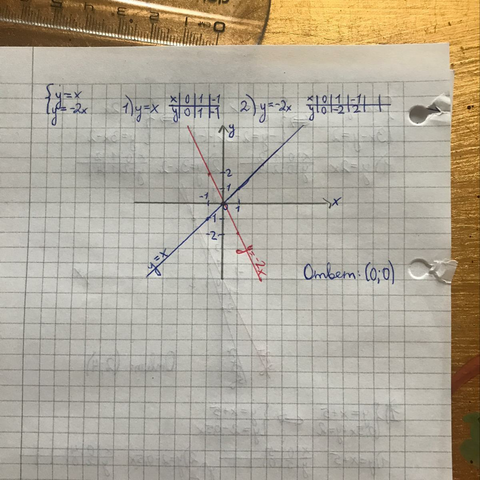 { y=x
y=-2x
1) y=x
x | 0 | 1 | -1
y | 0 | 1 | -1
2) y=-2x
x | 0 | 1 | -1
y | 0 | -2 | 2
y
2
1
-1 0 1 x
-1
-2
y=x
y=-2x
Ответ: (0;0)